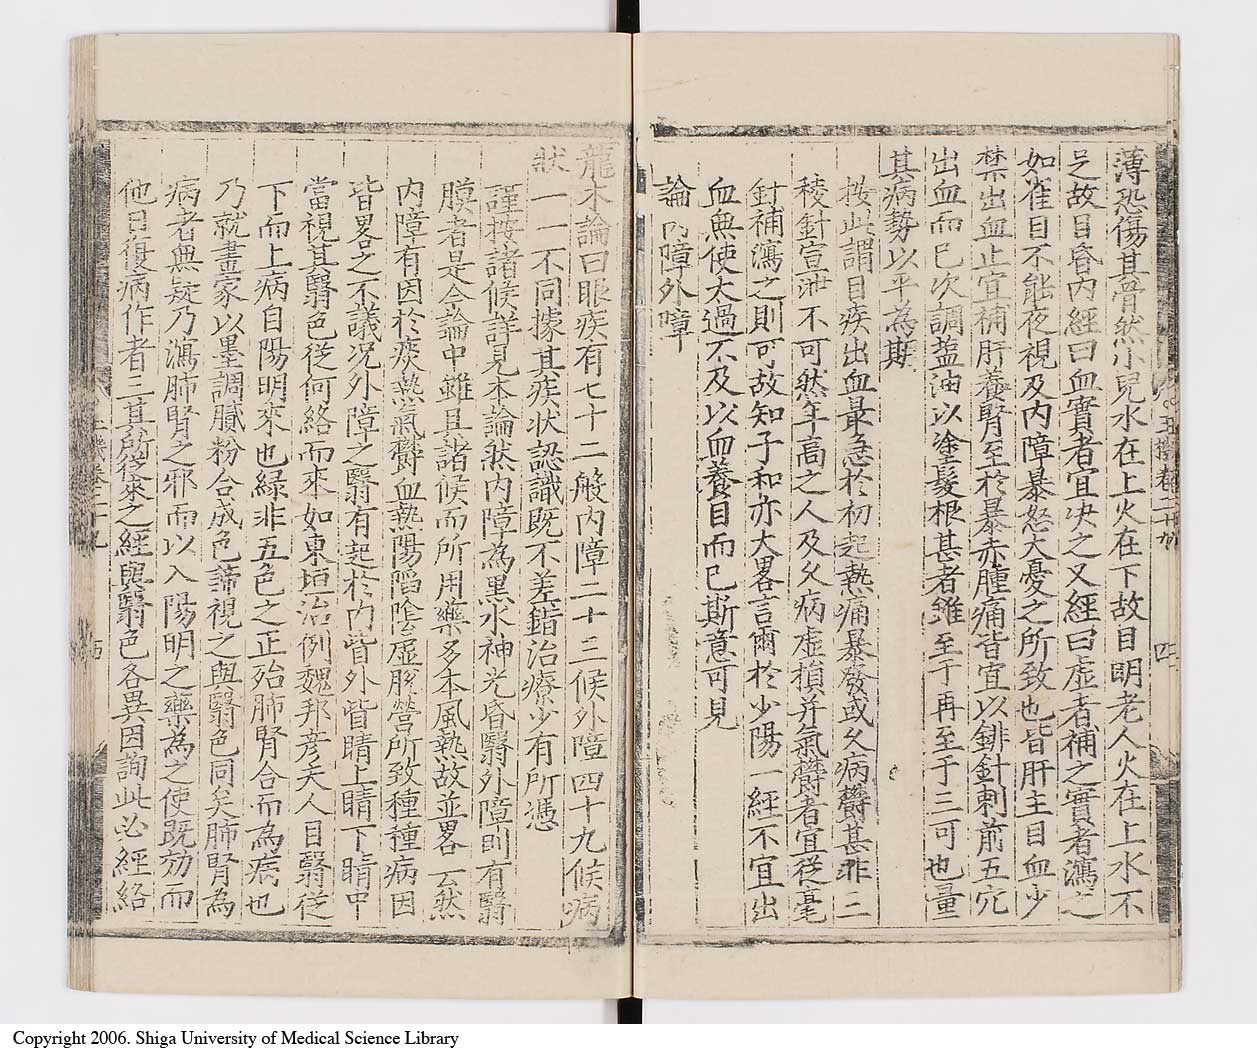 薄恐傷其骨然小兒水在上火在下故目明老人火在上水不
足故目昏内經曰血實者宜决之又經曰虛者補之實者瀉之
如雀目不能夜視及内障暴怒大憂之所致也皆肝主目血少
禁出血止宜補肝養腎至於暴赤腫痛皆宜以鈹針刺前五穴
出血而已次調盐油以塗髮根甚者雖至于再至于三可也量
其病勢以平為期
按此謂目疾出血最急於初起熱痛暴發或久病欝甚非二
稜針宣泄不可然年高之人及久病虛損并氣欝者宜從毫
針補瀉之則可故知子和亦大畧言爾於少陽一經不宜出
血無使太過不及以血養目而已斯意可見
論内障外障
龍木論曰眼疾有七十二般内障二十三候外障四十九候病
狀一一不同據其疾状認識既不差錯治療少有所憑
謹按諸候詳見本論然内障為黒水神光昏翳外障則有翳
膜者是今論中雖具諸候而所用藥多本風熱故並畧云然
内障有因於痰熱氣欝血熱陽陷陰虛脫營所致種種病因
皆畧之不議况外障之翳有起於内眥外眥睛上睛下睛中
當視其翳色從何絡而來如東垣治例魏邦彦夫人目翳從
下而上病自陽明來也綠非五色之正殆肺腎合而為病也
乃就畫家以墨調膩粉合成色諦視之與翳色同矣肺腎為
病者無疑乃瀉肺腎之邪而以入陽明之藥為之使既効而
他日復病作者三其所從來之經與翳色各異因詢此必經絡